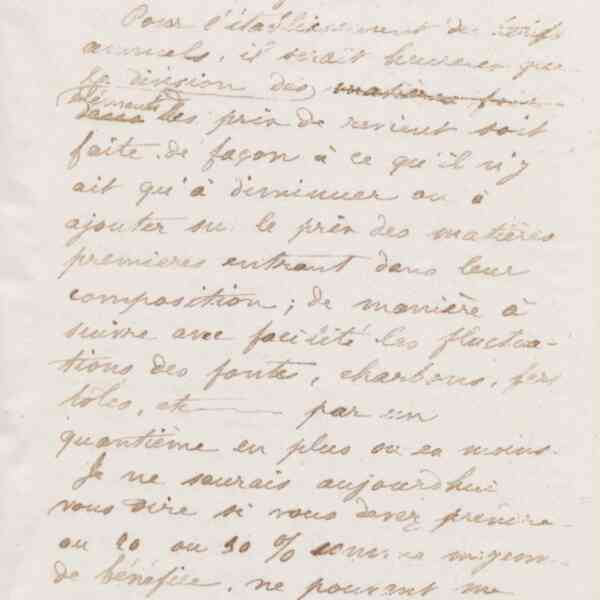 Pour l'établissement des tarifs
annuels, il serait heureux que
la division des matières
éléments des prix de revient soit
faite de façon à ce qu'il n'y
ait qu'à diminuer ou à
ajouter su le prix des matières
premieres entrant dans leur
composition ; de manière à
suivre avec facilité les fluctua-
tions des fontes, charbons, fers
tôles, etc par un
quantième en plus ou en moins.
Je ne saurais aujourd'hui
vous dire si vous devez prendre
ou 20 ou 30 % comme moyenne
de bénéfice, ne pouvant me